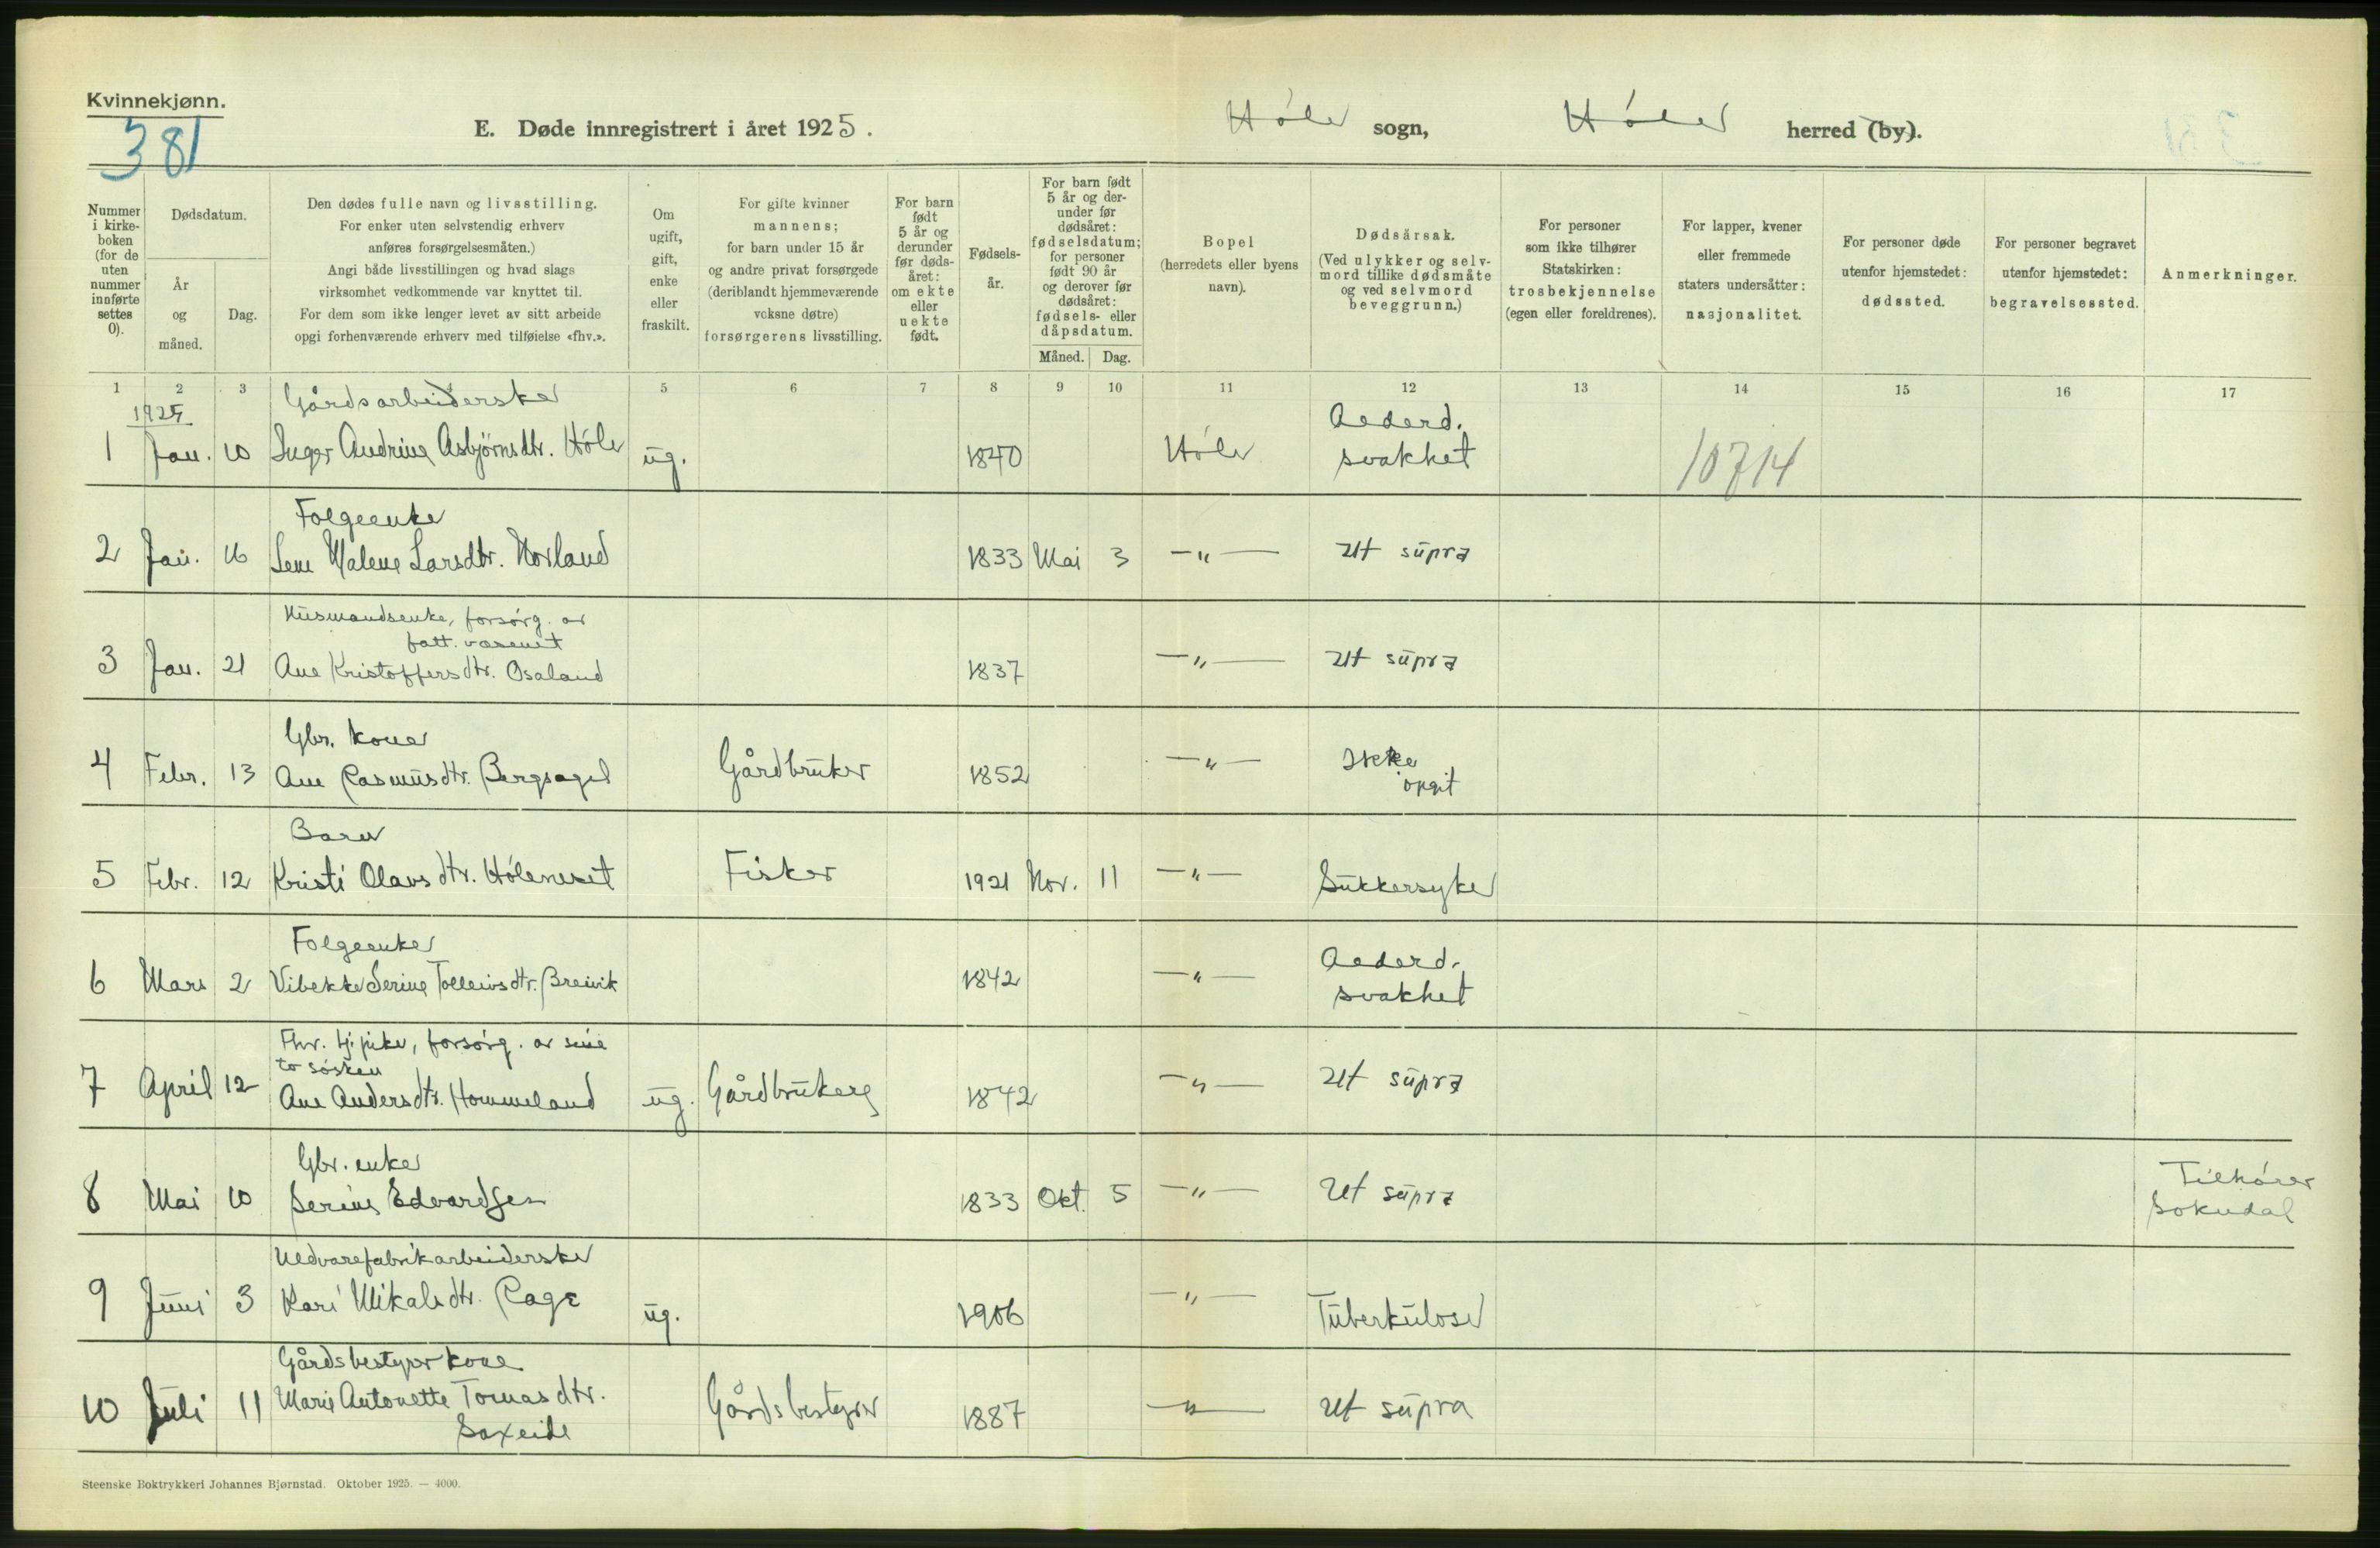 Kvinnekjønn.
381
E. Døde innregistrert i året 1925.
Høle sogn, Høle herred (by).
Nummer i kirkeboken (for de uten nummer innførte settes 0).
Dødsdatum.
År og måned.
Dag.
Den dødes fulle navn og livsstilling.
For enker uten selvstendig erhverv
anføres forsørgelsesmåten.)
Angi både livsstillingen og hvad slags
virksomhet vedkommende var knyttet til.
For dem som ikke lenger levet av sitt arbeide
opgi forhenværende erhverv med tilføielse «fhv.».
Om ugift, gift, enke eller fraskilt.
For gifte kvinner
mannens;
for barn under 15 år
og andre privat forsørgede
(deriblandt hjemmeværende
voksne døtre)
forsørgerens livsstilling.
For barn født 5 år og derunder før dødsåret: om ekte eller uekte født.
Fødselsår.
For barn født 5 år og derunder før dødsåret: fødselsdatum; for personer født 90 år og derover før dødsåret: fødsels- eller dåpsdatum.
Måned. Dag.
Bopel
(herredets eller byens navn).
Dødsårsak.
(Ved ulykker og selvmord tillike dødsmåte og ved selvmord beveggrunn.)
For personer som ikke tilhører Statskirken: trosbekjennelse (egen eller foreldrenes).
For lapper, kvener eller fremmede staters undersåtter: nasjonalitet.
For personer døde utenfor hjemstedet: dødssted.
For personer begravet utenfor hjemstedet: begravelsessted.
Anmerkninger.
1 2 3 5 6 7 8 9 10 11 12 13 14 15 16 17
1925
Gårdsarbeiderske
1 Jan. 10 Inger Andrina Asbjørnsdtr. Høle ug. 1840 Høle Alderd. svakhet 10714
Folgeenke
2 Jan. 16 Lene Malene Larsdtr. Norland 1833 Mai 3 —"— Ut supra
Husmandsenke, forsørg. av
fatt. væsenet
3 Jan. 21 Ane Kristoffersdtr. Osaland 1837 —"— Ut supra
Gbr. kone
4 Febr. 13 Ane Rasmusdtr. Bergsagel Gårdbruker 1852 —"— Ikke opgit
Barn
5 Febr. 12 Kristi Olavsdtr. Høleneset Fisker 1921 Nov. 11 —"— Sukkersyke
Folgeenke
6 Mars 2 Vibekke Serine Tolleivsdtr. Breivik 1842 —"— Alderd. svakhet
Fhv. tj. pike, forsørg. av sine
to søsken
7 April 12 Ane Andersdtr. Hommeland ug. Gårdbrukere 1842 —"— Ut supra
Gbr. enke
8 Mai 10 Serine Edvardsen 1833 Okt. 5 —"— Ut supra Tilhører Sokndal
Uldvarefabrikarbeiderske
9 Juni 3 Kari Mikalsdtr. Rage ug. 1906 —"— Tuberkulose
Gårdsbestyrerkone
10 Juli 11 Marie Antonette Tomasdtr. Gårdsbestyrer 1887 —"— Ut supra
Saxeide
Steenske Boktrykkeri Johannes Bjørnstad. Oktober 1925. — 4000.